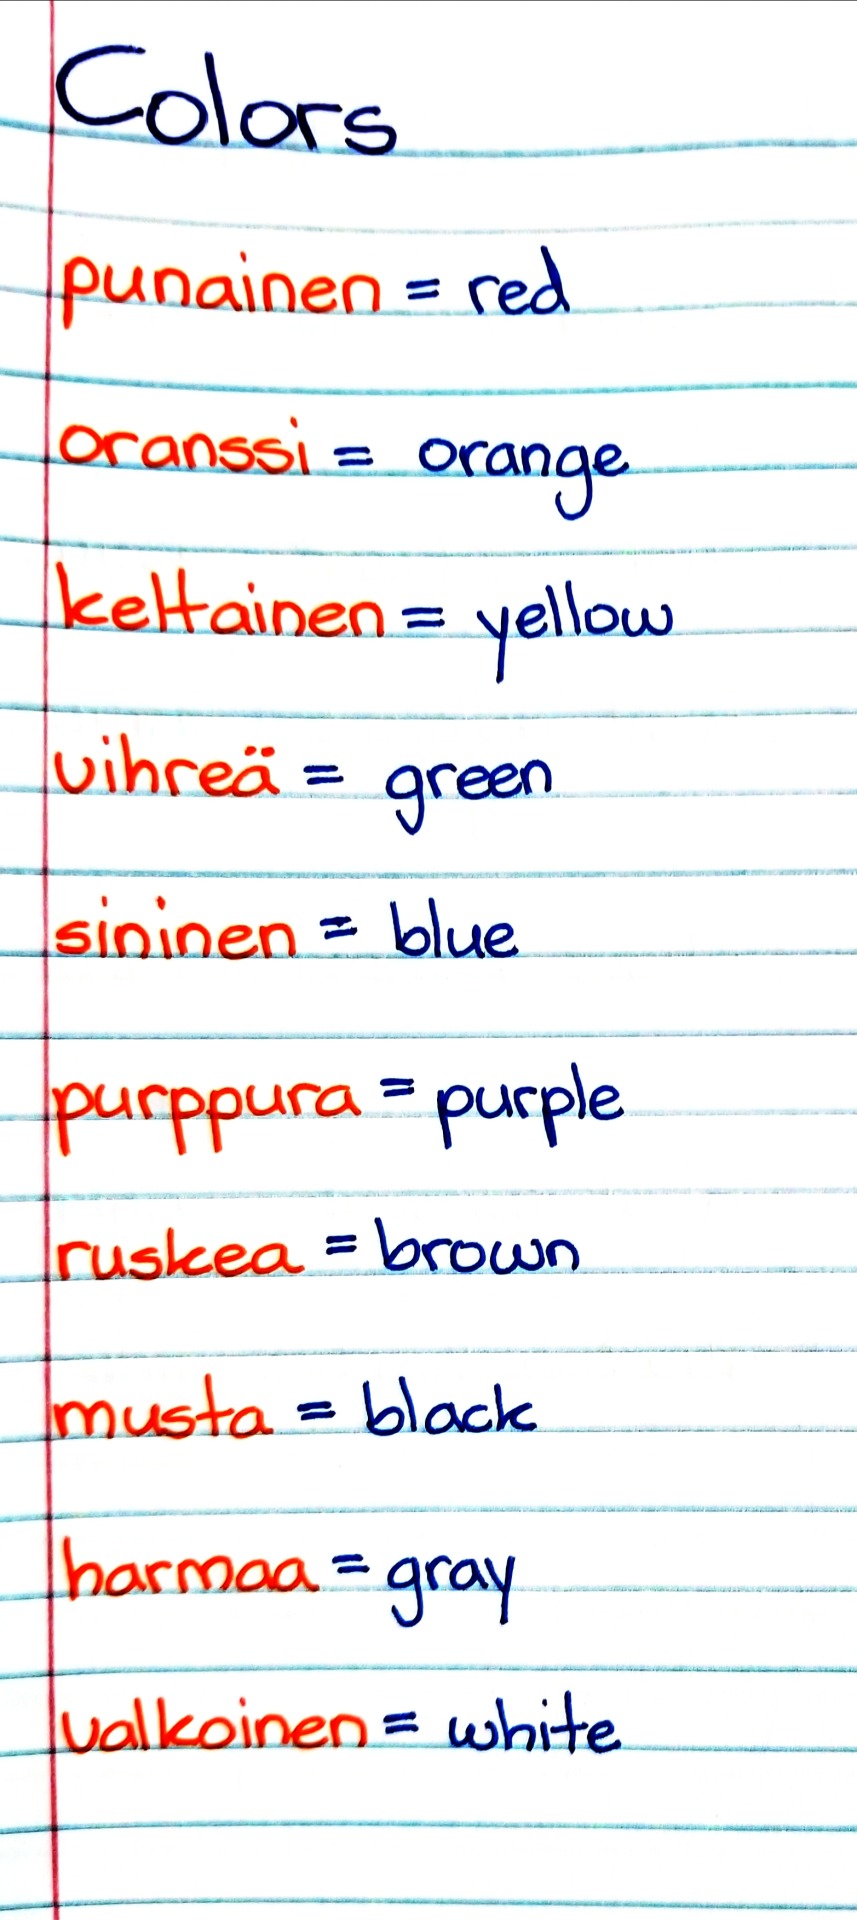 Colors
punainen = red
oranssi = orange
keltainen = yellow
vihreä = green
sininen = blue
purppura = purple
ruskea = brown
musta = black
harmaa = gray
valkoinen = white